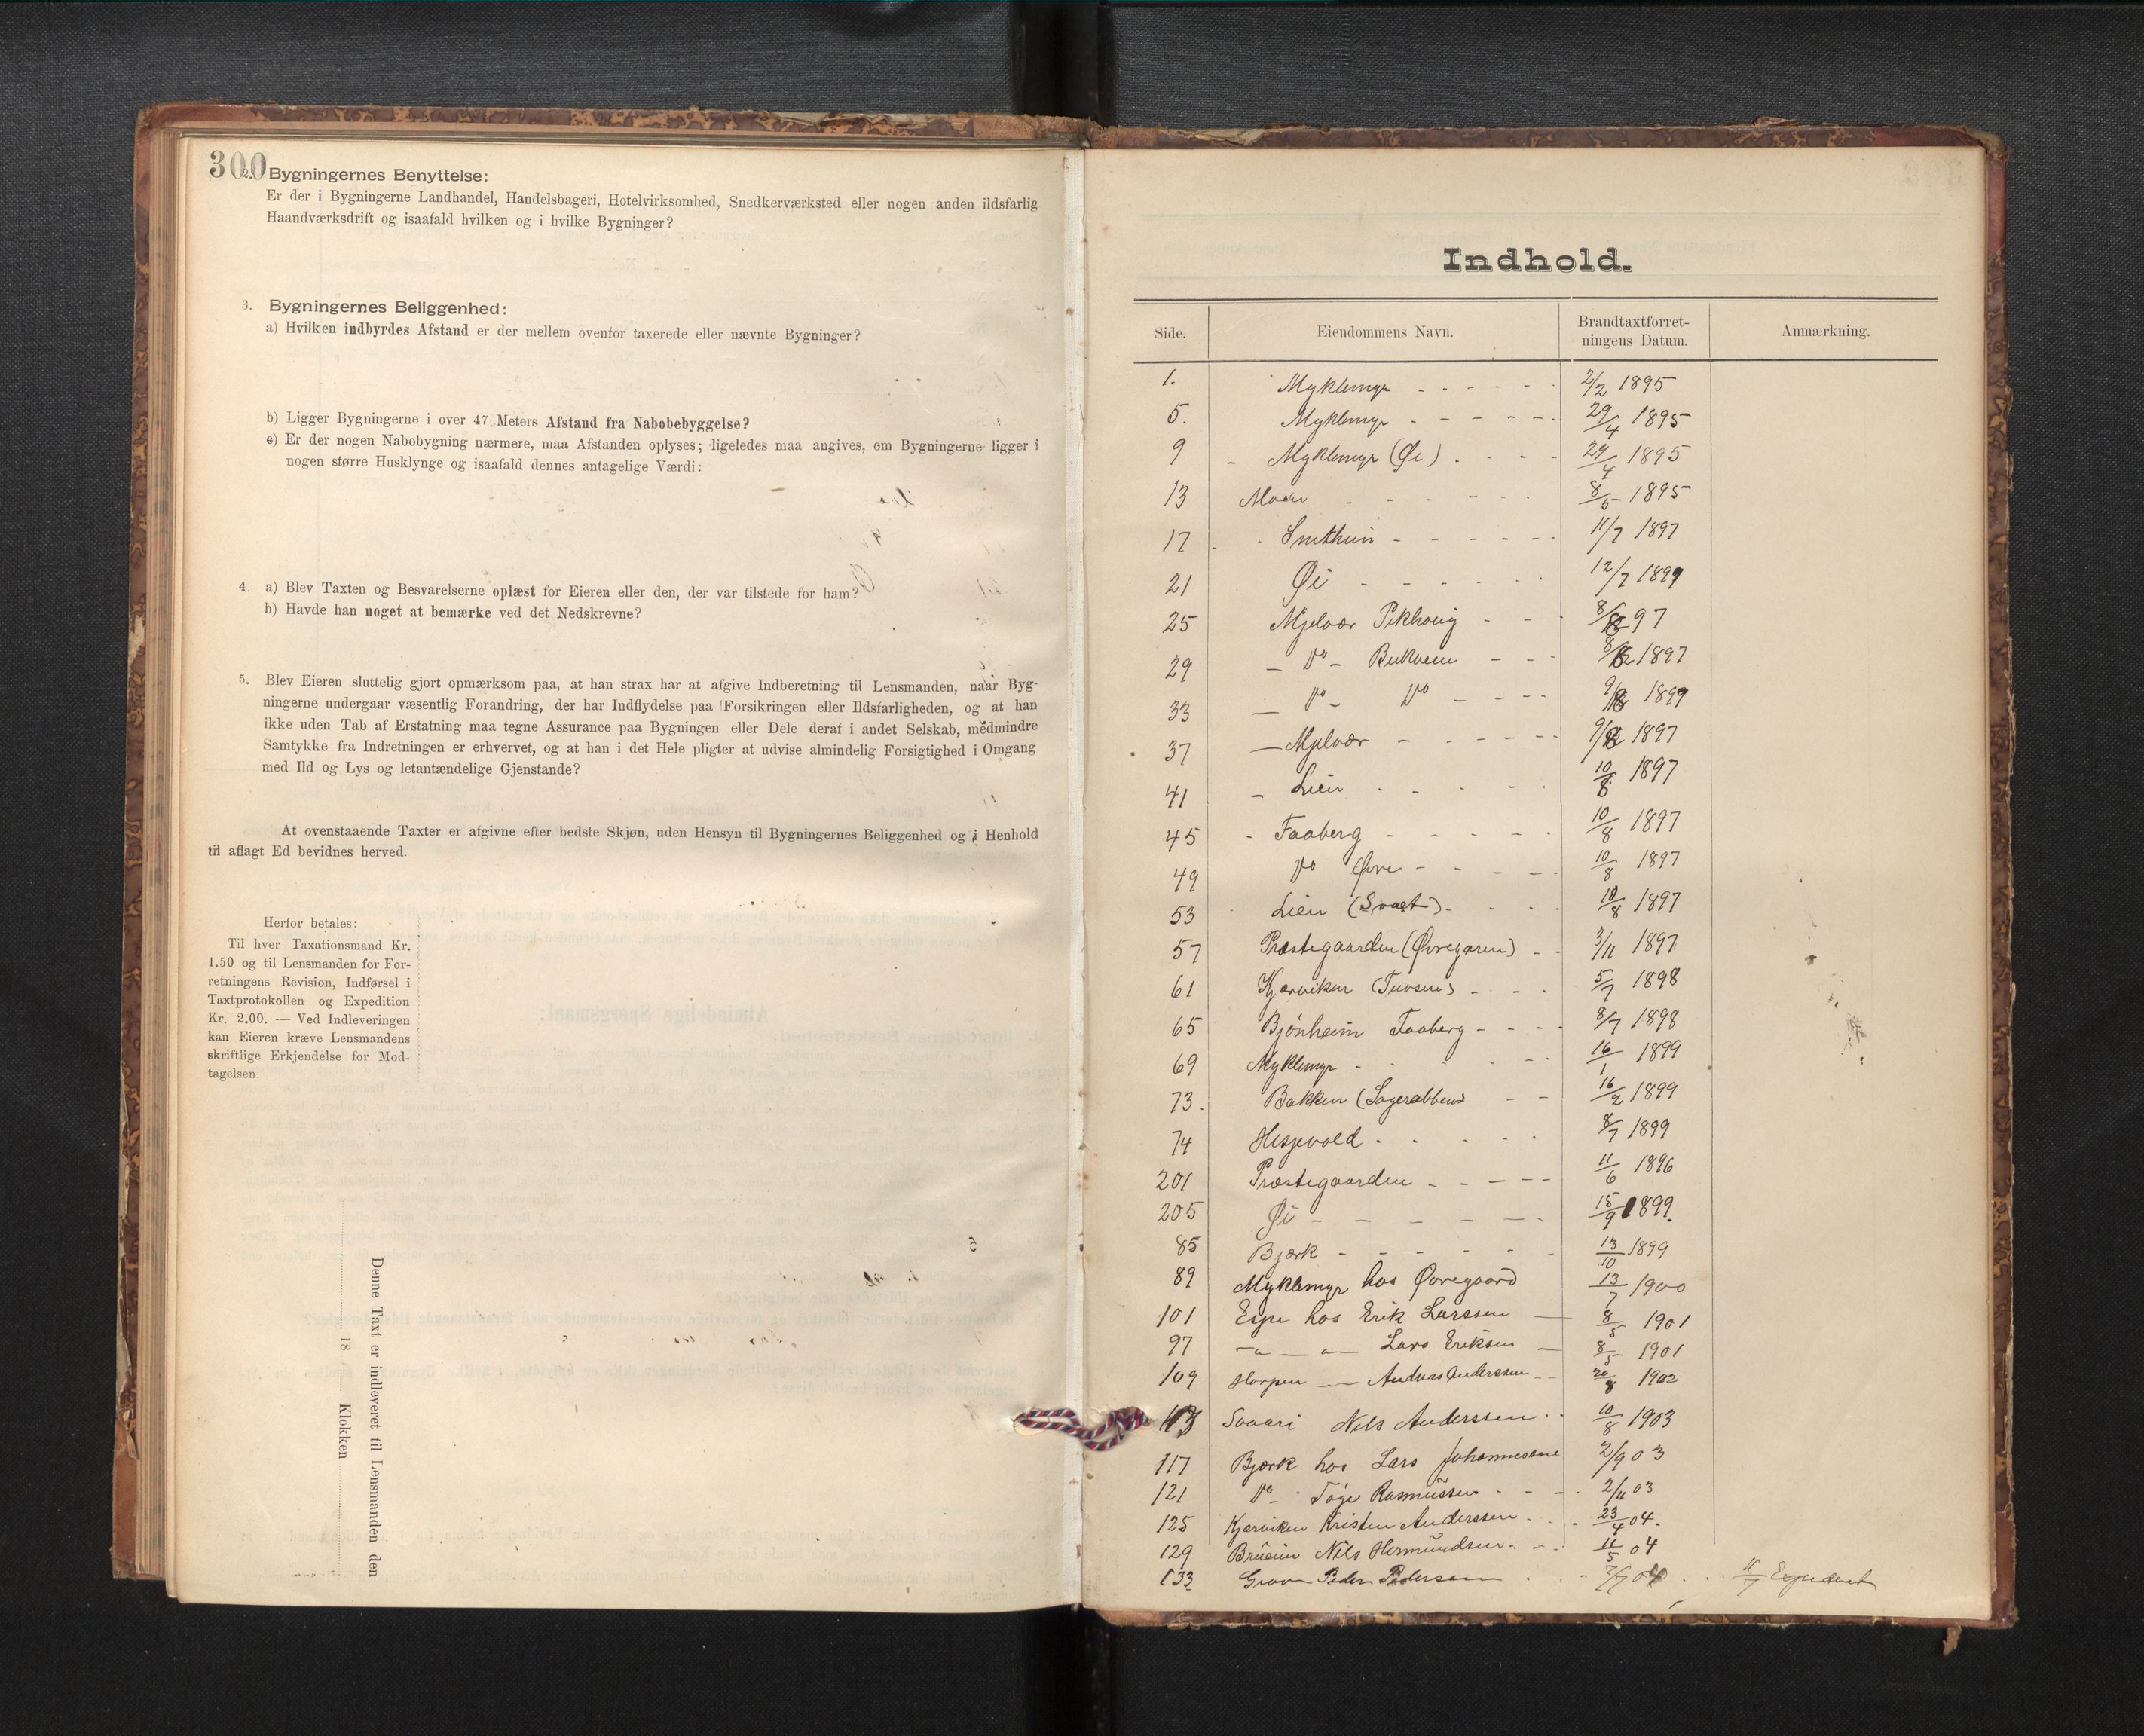 300
2. Bygningernes Benyttelse:
Er der i Bygningerne Landhandel, Handelsbageri, Hotelvirksomhed, Snedkerværksted eller nogen anden ildsfarlig
Haandværksdrift og isaafald hvilken og i hvilke Bygninger?
3. Bygningernes Beliggenhed:
a) Hvilken indbyrdes Afstand er der mellem ovenfor taxerede eller nævnte Bygninger?
b) Ligger Bygningerne i over 47 Meters Afstand fra Nabobebyggelse?
c) Er der nogen Nabobygning nærmere, maa Afstanden oplyses; ligeledes maa angives, om Bygningerne ligger i
nogen større Husklynge og isaafald dennes antagelige Værdi:
4. a) Blev Taxten og Besvarelserne oplæst for Eieren eller den, der var tilstede for ham?
b) Havde han noget at bemærke ved det Nedskrevne?
5. Blev Eieren sluttelig gjort opmærksom paa, at han strax har at afgive Indberetning til Lensmanden, naar Byg-
ningerne undergaar væsentlig Forandring, der har Indflydelse paa Forsikringen eller Ildsfarligheden, og at han
ikke uden Tab af Erstatning maa tegne Assurance paa Bygningen eller Dele deraf i andet Selskab, medmindre
Samtykke fra Indretningen er erhvervet, og at han i det Hele pligter at udvise almindelig Forsigtighed i Omgang
med Ild og Lys og letantændelige Gjenstande?
At ovenstaaende Taxter er afgivne efter bedste Skjøn, uden Hensyn til Bygningernes Beliggenhed og i Henhold
til aflagt Ed bevidnes herved.
Herfor betales:
Til hver Taxationsmand Kr.
1.50 og til Lensmanden for For-
retningens Revision, Indførsel i
Taxtprotokollen og Expedition
Kr. 2.00. — Ved Indleveringen
kan Eieren kræve Lensmandens
skriftlige Erkjendelse for Mod-
tagelsen.
Denne Taxt er indleveret til Lensmanden den
18 Klokken
Indhold.
Side. Eiendommens Navn. Brandtaxtforret- Anmærkning.
ningens Datum.
1. Myklemyr 2/2 1895
5. Myklemyr 29/4 1895
9 Myklemyr (Øi) 29/4 1895
13 Moen 8/5 1895
17 Snethun 11/7 1897
21 Øi 12/7 1897
25 Mjelvær 8/8 97
29 - Do - 8/8 1897
33 - Do - Do 9/8 1897
37 - Mjelvær 9/8 1897
41 - Lien 10/8 1897
45 - Faaberg 10/8 1897
49 Do Øvre 10/8 1897
53 Lien (Svaet) 10/8 1897
57 Præstegaarden (Øvregaren) 3/11 1897
61 Kjærviken 5/7 1898
65 Bjønheim Faaberg 8/7 1898
69 Myklemyr 16/1 1899
73. Bakken 16/2 1899
74 Hesjevold 8/7 1899
201 Præstegaarden 11/6 1896
205 Øi 15/9 1899.
85 Bjørk 13/10 1899
89 Myklemyr hos Øvregaard 13/7 1900
101 Espe hos Erik Larssen 8/5 1901
97 - " - " - Lars Eriksen 8/5 1901
109 Harpen — Andreas Anderssen 20/8 1902
113 Svaari Nils Anderssen 10/8 1903
117 Bjørk hos Lars 2/9 03
121 Do - Tøge Rasmussen 2/11 03
125 Kjærviken Kristen Anderssen 23/4 04.
129 Nils Hermundsen 11/5 04
133 Peder Pedersen 7/7 04 11/7